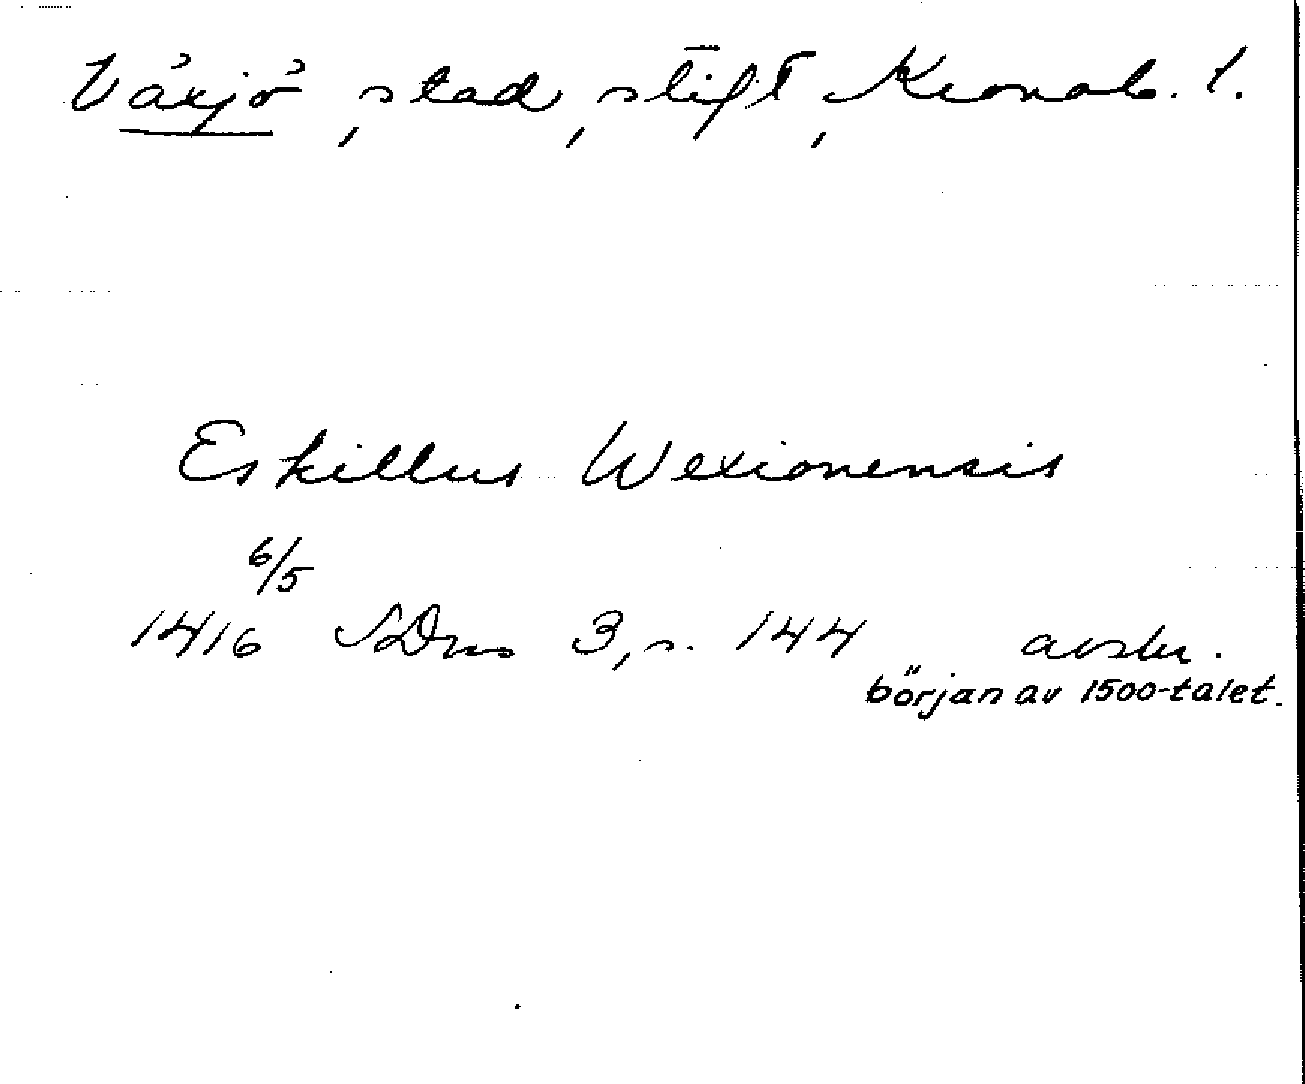 Växjö, stad, stift, Kronob. l.
Eskillus Wexionensis
6/5
1416 SDns 3, s. 144 avskr.
början av 1500-talet.